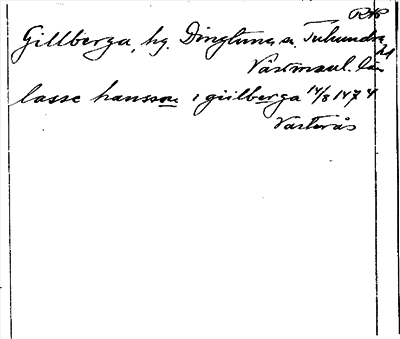 RAP
Gillberga, hg. Dingtuna sn. Tuhundra
Västmanl. län
lasse hansson i gillberga 14/8 1474
Västerås